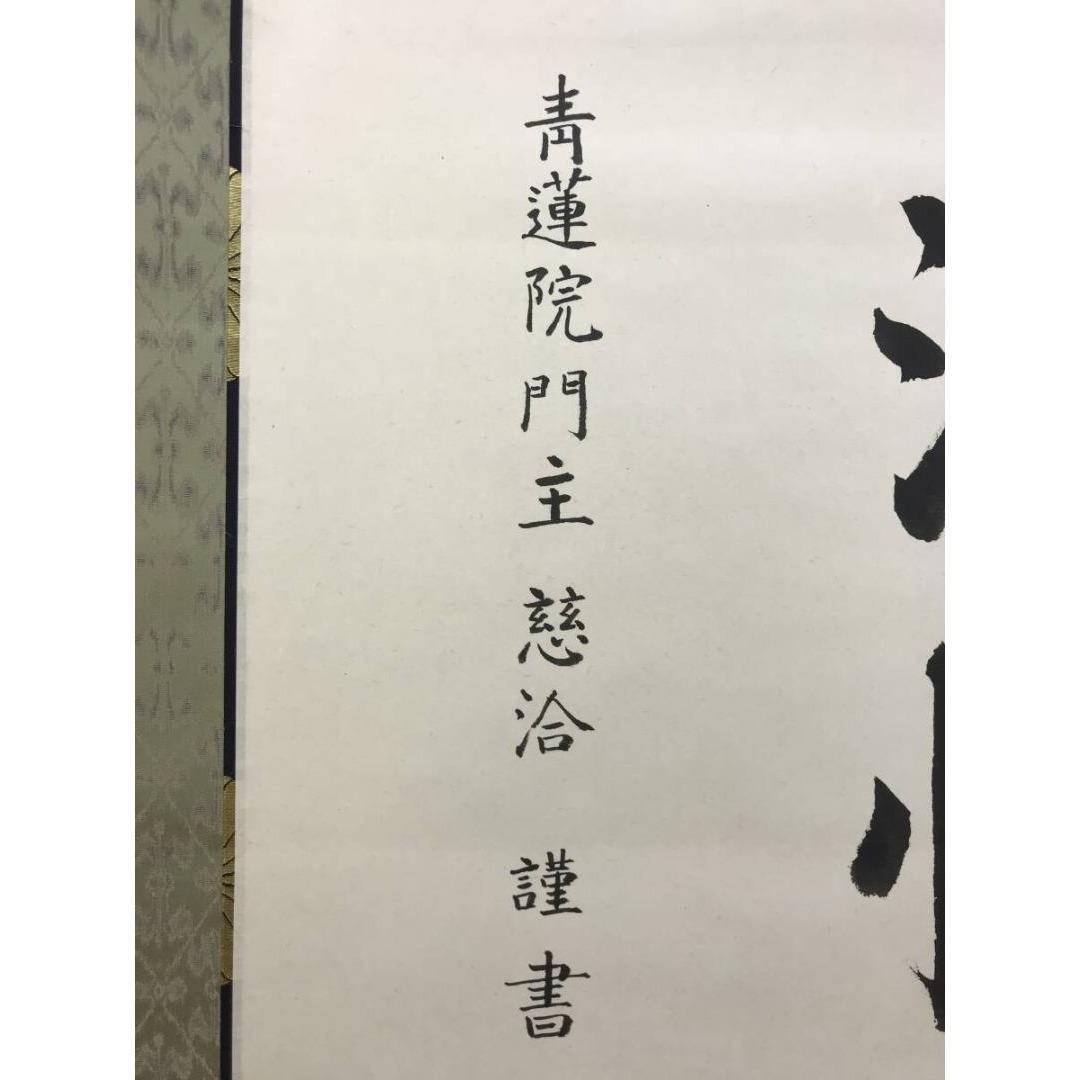 青蓮院門主 慈洽 謹書